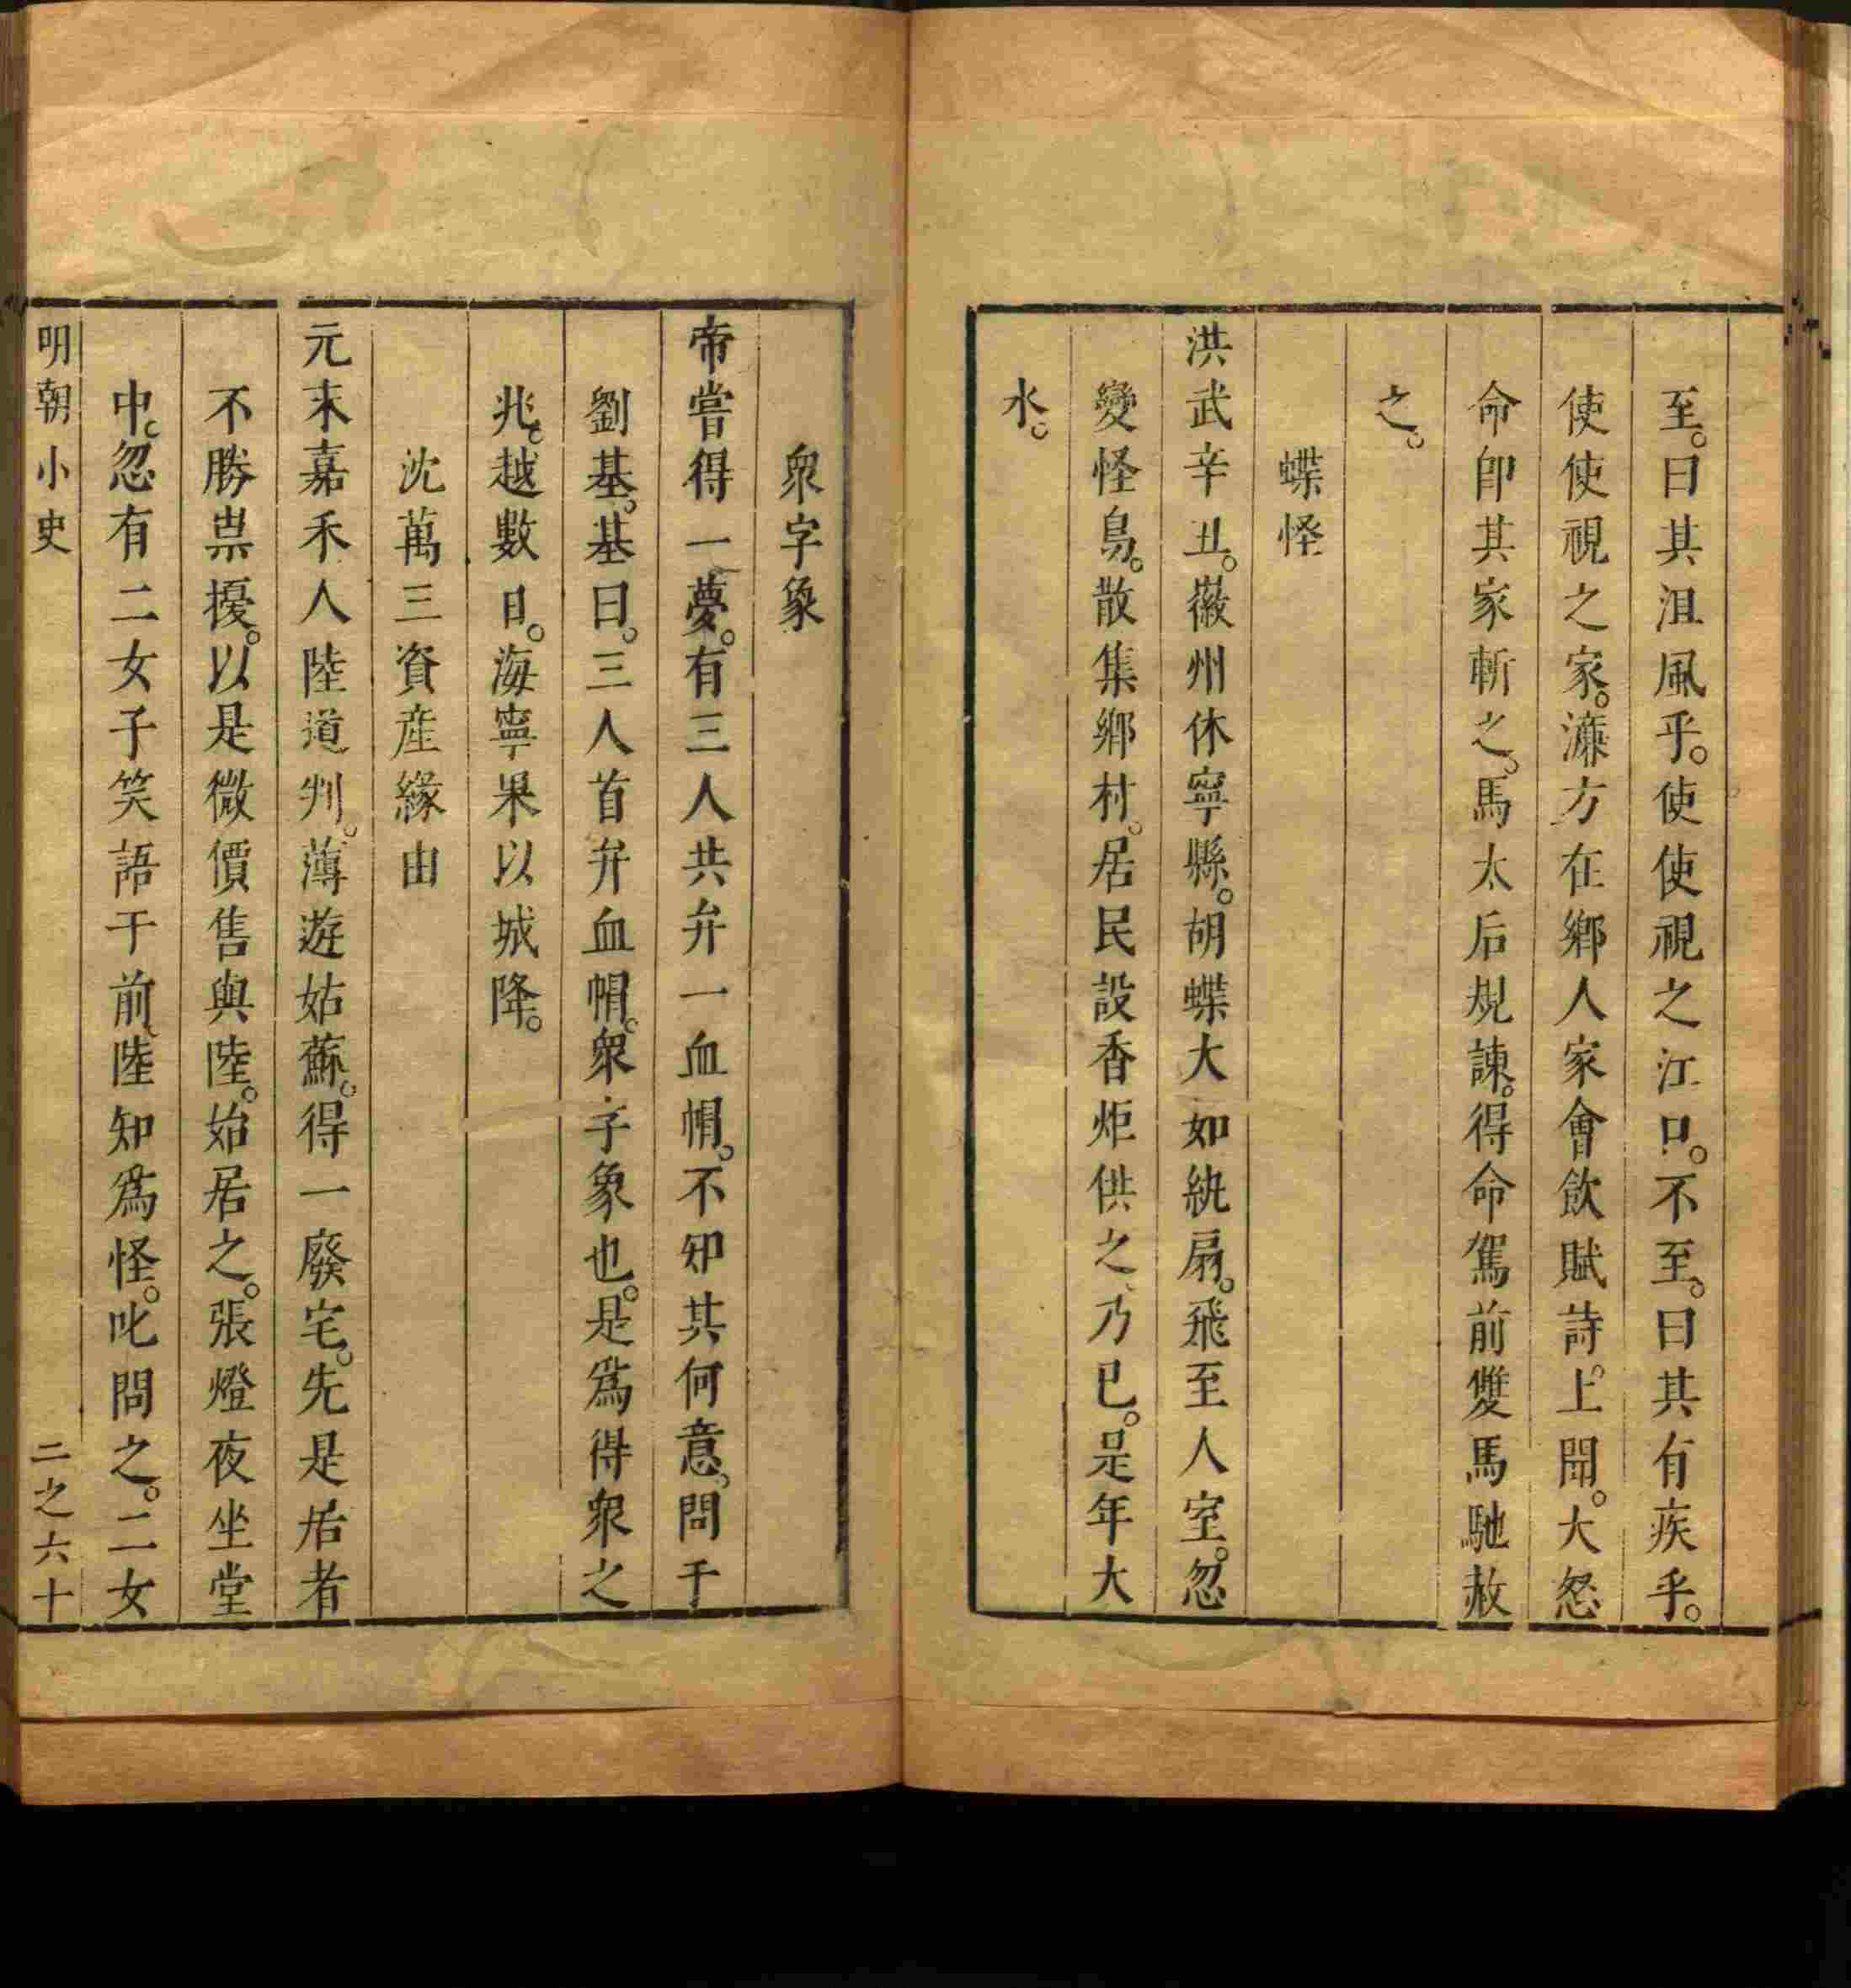 至。曰其沮風乎。使使視之江口。不至。曰其有疾乎。
使使視之家。濂方在鄉人家會飲賦詩。上聞。大怒
命卽其家斬之。馬太后規諫。得命駕前雙馬馳赦
之。
蝶怪
洪武辛丑。徽州休寧縣。胡蝶大如紈扇。飛至人室。忽
變怪鳥。散集鄉村。居民設香炬供之、乃已。是年大
水。
衆字象
帝嘗得一夢。有三人共弁一血帽。不知其何意。問于
劉基。基曰。三人首弁血帽。衆字象也。是爲得衆之
兆。越數日。海寧果以城降。
沈萬三資産緣由
元末嘉禾人陸道判。薄遊姑蘇。得一廢宅。先是居者
不勝祟擾。以是微價售與陸。始居之。張燈夜坐堂
中。忽有二女子笑語于前。陸知爲怪。叱問之。二女
明朝小史 二之六十